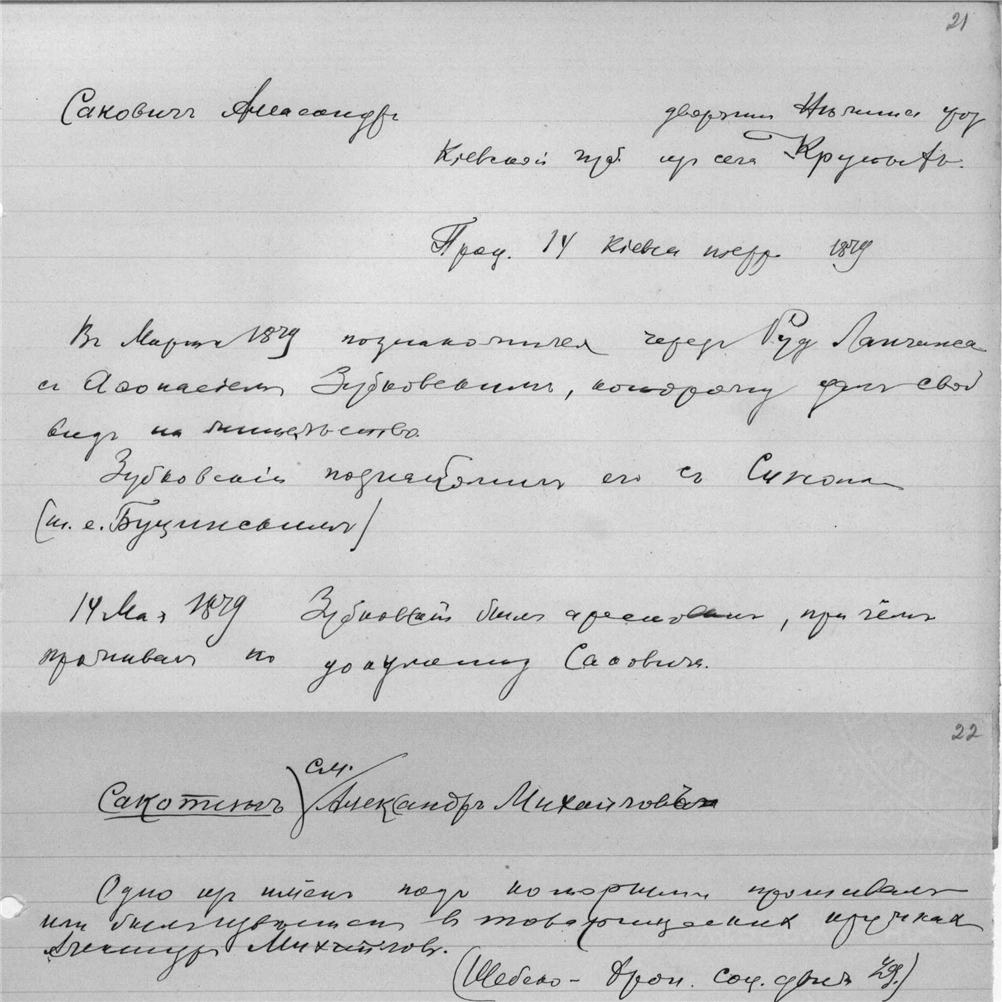 21
Саковичъ Александръ дворянин
Кіевской губ. из села
14 Кіевск 1879
Въ Мартѣ 1879 познакомился черезъ
съ Афонасіемъ Зубковскимъ, которому далъ свой
видъ на жительство.
Зубковскій познакомилъ его съ
(т. е. Буцинскимъ)
14 Мая 1879 Зубковскій былъ арестованъ, при чёмъ
проживалъ по документу Саковича.
22
Сакотинъ) см. Александръ Михайловъ
Одно изъ имёнъ подъ которыми проживалъ
или былъ извѣстенъ в товарищеских кружках
Александръ Михайловъ.
(Шебеко - Хрон. соц. движ.